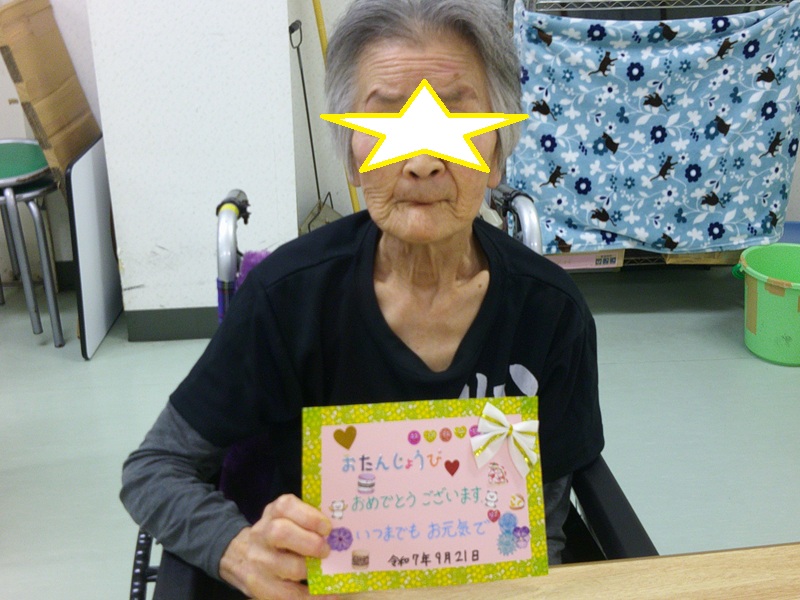 おたんじょうび
おめでとうございます
いつまでも お元気で
令和7年9月21日